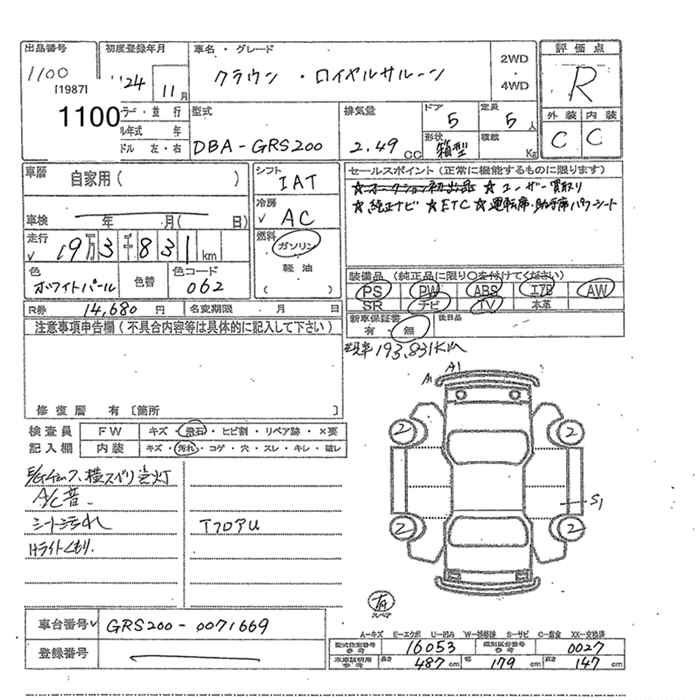 出品番号
1100
[1987]
1100
初度登録年月
24 11月
車名・グレード
クラウン ・ ロイヤルサルーン
2WD
・
4WD
評価点
R
外装 内装
C C
型式
DBA-GRS200
排気量
2.49 CC
ドア
5
定員
5人
形状
箱型
積載
Kg
ラー・並行
ル年式 年
ドル 左・右
車歴
自家用 ( )
シフト
IAT
冷房
AC
燃料
ガソリン
軽油
車検
年 月( 日)
走行
19万3千831km
色
ホワイトパール
色替
色コード
062
R券 14,680円
名変期限 月 日
セールスポイント (正常に機能するものに限ります)
★オークション初出品 ★ユーザー買取り
★純正ナビ ★ETC ★運転席・助手席パワーシート
装備品 (純正品に限り○を付けてください)
PS PW ABS エアB AW
SR ナビ TV 本革
新車保証書
有・無
後日品
現車193,831KM
注意事項申告欄(不具合内容等は具体的に記入して下さい)
修復歴 有 [箇所
検査員
記入欄
FW キズ・飛石・ヒビ割・リペア跡・×要
内装 キズ・汚れ・コゲ・穴・スレ・キレ・破レ
E/Gチェック、横スベリ 警灯
A/C音.
シート汚れ
Hライトくもり.
TフロアU
A1
A1
2
2
2
2
S1
有
スペア
車台番号
GRS200-0071669
登録番号
A-キズ E-エクボ U-凹み W-補修跡 S-サビ C-腐食 XX-交換済
型式指定番号
参考
16053
類別区分番号
参考
0027
車庫証明用
参考
長さ
487cm
幅
179cm
高さ
147cm